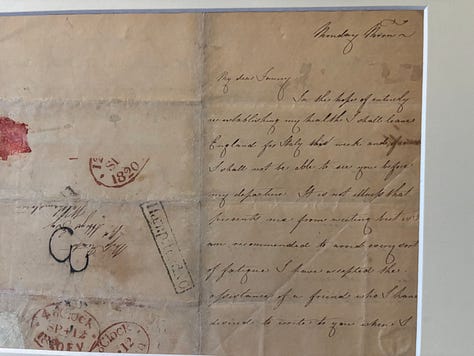 Monday Morn
My dear Fanny
In the hope of entirely
re-establishing my health I shall leave
England for Italy this week and, of course
I shall not be able to see you before
my departure. It is not illness that
prevents me from writing but as I
am recommended to avoid every sort
of fatigue I have accepted the
assistance of a friend who I have
desired to write to you when I
1820
SP 12